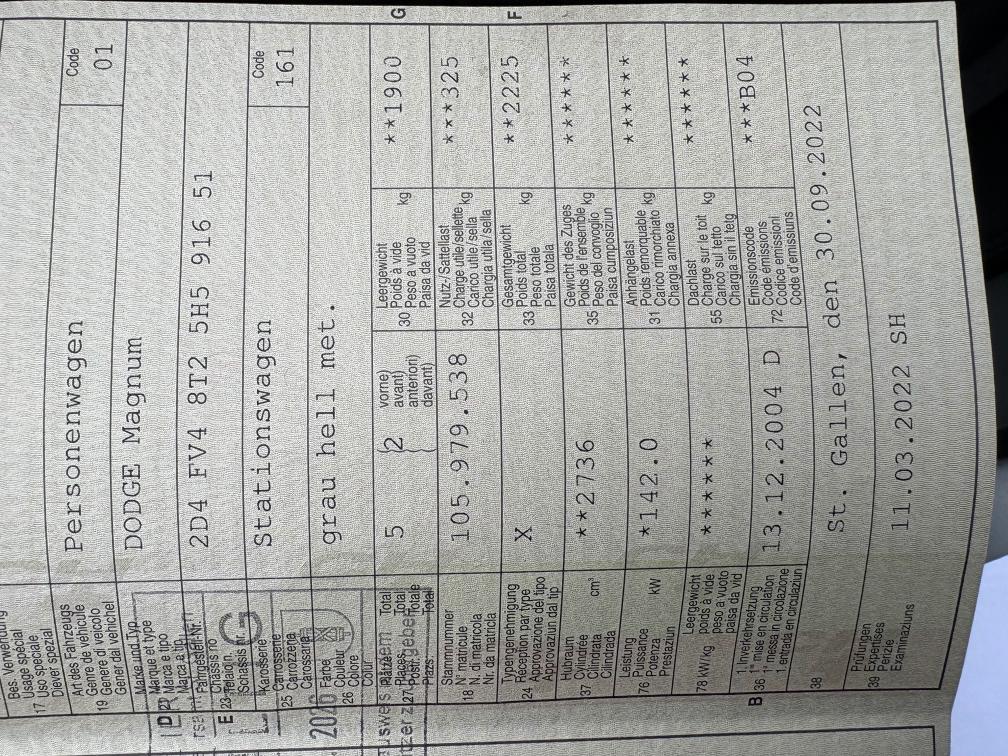 Bes. Verwendung
Usage spécial
17 Uso speciale
Diever spezial
Art des Fahrzeugs
Genre de véhicule
19 Genere di veicolo
Gener dal vehichel
Personenwagen
Code
01
Marke und Typ
Marque et type
D 21 Marca e tipo
DODGE Magnum
Fahrgestell-Nr.
Châssis no
E 23 Telaio n.
Schassis nr.
2D4 FV4 8T2 5H5 916 51
Karosserie
Carrosserie
25 Carrozzeria
Carossaria
Stationswagen
Code
161
Farbe
Couleur
26 Colore
Colur
grau hell met.
2026
Plätze Total
27 Places Total
Posti Totale
Plazs Total
5
(2
vorne)
avant)
anteriori)
davant)
Leergewicht
Poids à vide
30 Peso a vuoto kg
Paisa da vid
**1900
G
Stammnummer
N° matricule
18 N. di matricola
Nr. da matricla
105.979.538
Nutz-/Sattellast
Charge utile/sellette
32 Carico utile/sella kg
Chargia utila/sella
***325
Typengenehmigung
Réception par type
24 Approvazione del tipo
Approvaziun dal tip
X
Gesamtgewicht
Poids total
33 Peso totale kg
Paisa totala
**2225
F
Hubraum
Cylindrée
37 Cilindrata cm³
Cilindrada
**2736
Gewicht des Zuges
Poids de l'ensemble
35 Peso del convoglio kg
Paisa cumposiziun
******
Leistung
Puissance
76 Potenza kW
Prestaziun
*142.0
Anhängelast
Poids remorquable
31 Carico rimorchiato kg
Chargia annexa
******
Leergewicht
poids à vide
78 kW/kg peso a vuoto
paisa da vid
******
Dachlast
Charge sur le toit
55 Carico sul tetto kg
Chargia sin il tetg
******
1. Inverkehrsetzung
1re mise en circulation
B 36 1a messa in circolazione
1. entrada en circulaziun
13.12.2004 D
Emissionscode
Code émissions
72 Codice emissioni
Code d'emissiuns
***B04
38
St. Gallen, den 30.09.2022
Prüfungen
Expertises
39 Perizie
Examinaziuns
11.03.2022 SH